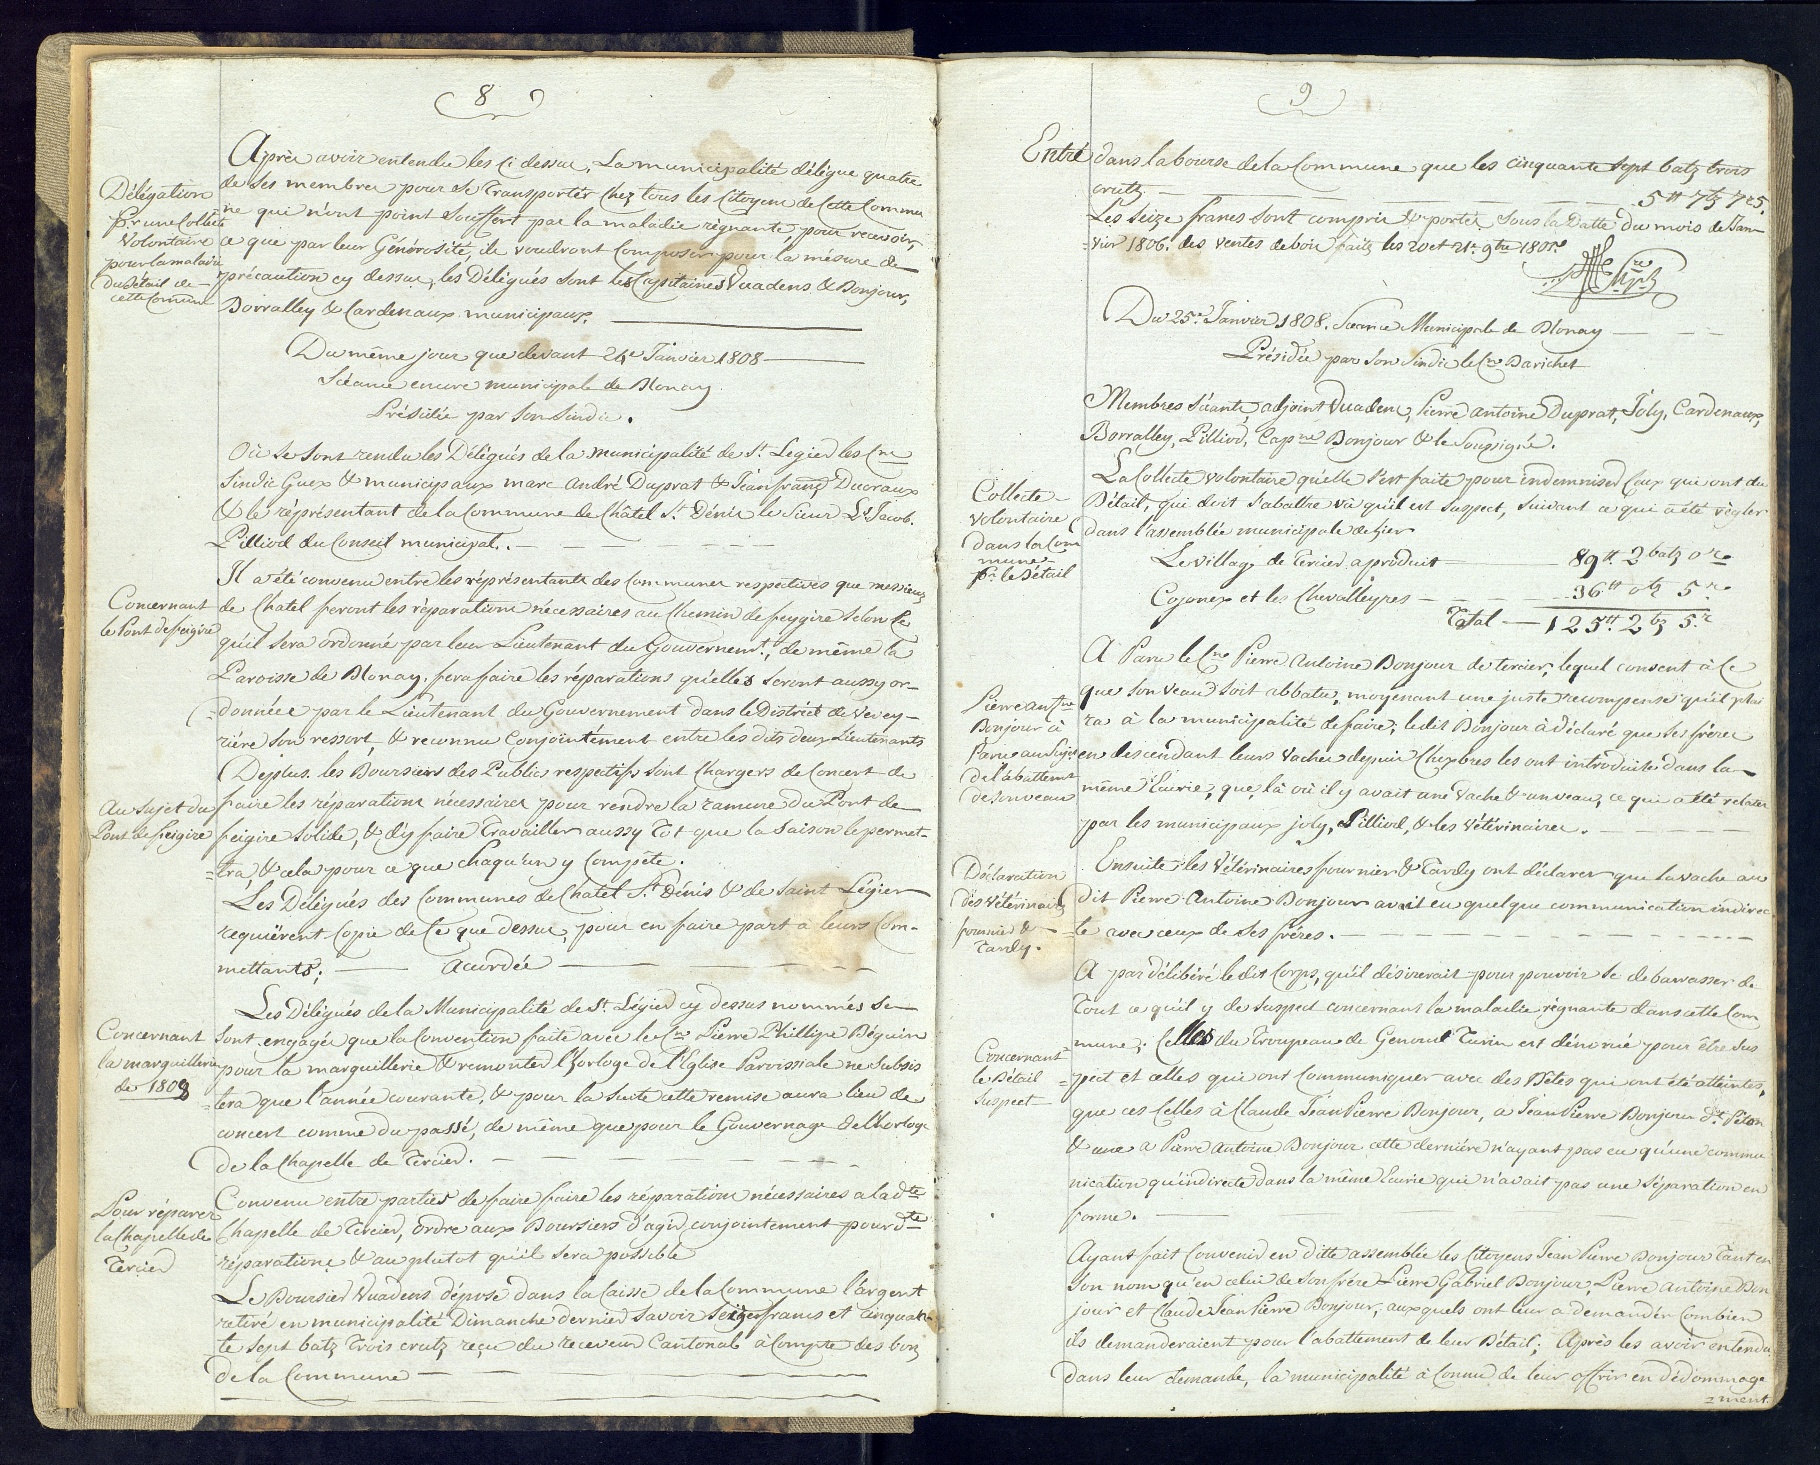 8
Après avoir entendu les ci dessus, La municipalité délègue quatre
Délégation
de ses membres pour se transporter chez tous les Citoyens de Cette Commu
pr. une Collecte
ne qui n'ont point souffert par la maladie régnante, pour recevoir,
Volontaire
ce que par leur Générosité, ils voudront Composer pour la mesure de
pour la maladie
du Bétail de
précaution cy dessus, les Délégués sont les Capitaines Vuadens & Bonjour,
cette Comune
Borralley & Cardenaux municipaux.
Du même jour que devant 24e Janvier 1808
Séance encore municipale de Blonay
Présidée par son Sindic.
Où se sont rendu les Délégués de la municipalité de St. Legier les Cns
Sindic Guex & municipaux marc André Duprat & Jean franç Ducraux
& le réprésentant de la Commune de Châtel St. Dénis le Sieur Ls Jacob.
Pilliod du Conseil municipal.
Il a été convenu entre les réprésentants des Communes respectives que messieurs
Concernant
de Chatel feront les réparations nécessaires au Chemin de feygire selon Ce
le Pont de feigire
qu'il sera ordonné par leur Lieutenant du Gouvernemt., de même la
Paroisse de Blonay. fera faire les réparations qu'elles seront aussy or-
=donnée par le Lieutenant du Gouvernement dans le District de Vevey-
rière son ressort, & reconnu Conjointement entre les dits deux Lieutenants
Deplus les Boursiers des Publics respectifs sont Chargers de Concert de
Au Sujet du
faire les réparations nécessaires pour rendre la ramure du Pont de
Pont de feigire
feigire solide, & d'y faire Travailler aussy Tôt que la saison le permet-
=tra & cela pour ce que Chaqu'un y Compète.
Les Délégués des Communes de Chatel St. Dénis & de Saint Légier
requièrent Copie de Ce que dessus, pour en faire part à leurs Com-
mettants; Acordée
Les Délégués de la Municipalité de St. Légier cy dessus nommés se
Concernant
sont engagés que la Convention faite avec le Cn Pierre Phillipe Béguin
la marguillerie
pour la marguillerie & remonter l'horloge de l'Eglise Paroissiale ne Subsis
de 1808
=tera que l'année courante, & pour la Suite cette remise aura lieu de
concert comme du passé, de même que pour le Gouvernage de l'horloge
de la Chapelle de Tercier.
Convenu entre parties de faire faire les réparations nécessaires a la dte
Pour réparer
la Chapelle de
Chapelle de Tercier, ordre aux Boursiers d'agir conjointement pour dte
Tercier
réparations & au plutot qu'il sera possible
Le Boursier Vuadens dépose dans la Caisse de la Commune l'argent
retiré en municipalité Dimanche dernier savoir seize francs et cinquan
=te sept batz Trois crutz reçu du receveur Cantonal à Compte des bons
de la Commune
9
Entré dans la bourse de la Commune que les cinquante sept batz trois
crutz 5 ff 7 bz 7 rs.
Les seize francs sont compris & portés sous la Datte du mois de Jan-
=vier 1806. des ventes de bois faites les 20 et 21e. 9bre 1805
Du 25e. Janvier 1808. Séance Municipale de Blonay
Présidée par son Sindic le Cn Barichet
Membres Séants adjoint Vuadens, Pierre antoine Duprat, Joly, Cardenaux,
Borralley, Pilliod, Capne Bonjour & le Soussigné.
La Collecte volontaire qu'elle s'est faite pour indemniser Ceux qui ont du
Collecte
Volontaire
Bétail, qui doit s'abattre vû qu'il est suspect, suivant ce qui a été règler
dans la Com
mune
dans l'assemblée municipale de hier
pr. le Bétail
Le village de Tercier a produit 89 ff. 2 batz 0 rs
Cojonex et les Chevalleyres 36 ff 0 bz 5 rs
Total 125 ff. 2 bz 5. rs
A Paru le Cn Pierre Antoine Bonjour de tercier, lequel consent à Ce
Pierre antne
que son veau soit abbatu, moyenant une juste recompense qu'il plai
Bonjour à
ra à la municipalité de faire; le dit Bonjour à déclaré que ses frères
Paru au Sujet
en descendant leurs vaches depuis Chexbres les ont introduite dans la
de l'abattemt
de son veau
même Ecurie, que, là où il y avait une vache & un veau, ce qui a été relater
par les municipaux joly, Pilliod, & les Vétérinaires.
Ensuite les Vétérinaires fournier & Tardy ont déclarer que la vache au
Déclaration
des Vétérinaires
dit Pierre Antoine Bonjour avait eu quelque communication indirec
fournier &
Tardy.
=te avec ceux de ses frères.
A par délibéré le dit Corps, qu'il désirerait pour pouvoir se debarrasser de
Tout ce qu'il y de Suspect concernant la maladie régnante dans cette Com
mune; Celles du Troupeau de Genoud Turin est dénomé pour être Sus
Concernant
le Bétail
=pect et celles qui ont Communiquer avec des Bêtes qui ont été atteintes,
Suspect
que ces Celles à Claude Jean Pierre Bonjour, a Jean Pierre Bonjour dt. Péton
& une a Pierre Antoine Bonjour cette dernière n'ayant pas eu qu'une commu
nication qu'indirecte dans la même Ecurie qui n'avait pas une Séparation en
forme.
Ayant fait Convenir en ditte assemblée les Citoyens Jean Pierre Bonjour Tant en
son nom qu'en celui de son frère Pierre Gabriel Bonjour, Pierre Antoine Bon
jour et Claude Jean Pierre Bonjour, auxquels ont leur a demandér Combien
ils demanderaient pour l'abattement de leur Bétail; Après les avoir entendu
dans leur demande, la municipalité à Connu de leur offrir en dédommage
=ment.